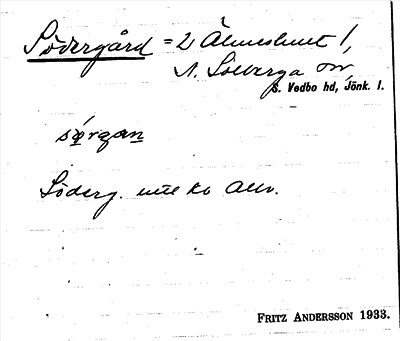 Södergård = 2 Älmeshult 1,
N. Solberga sn,
S. Vedbo hd, Jönk. l.
sǿrgan
Söderg. enl. ko Allm.
FRITZ ANDERSSON 1933.